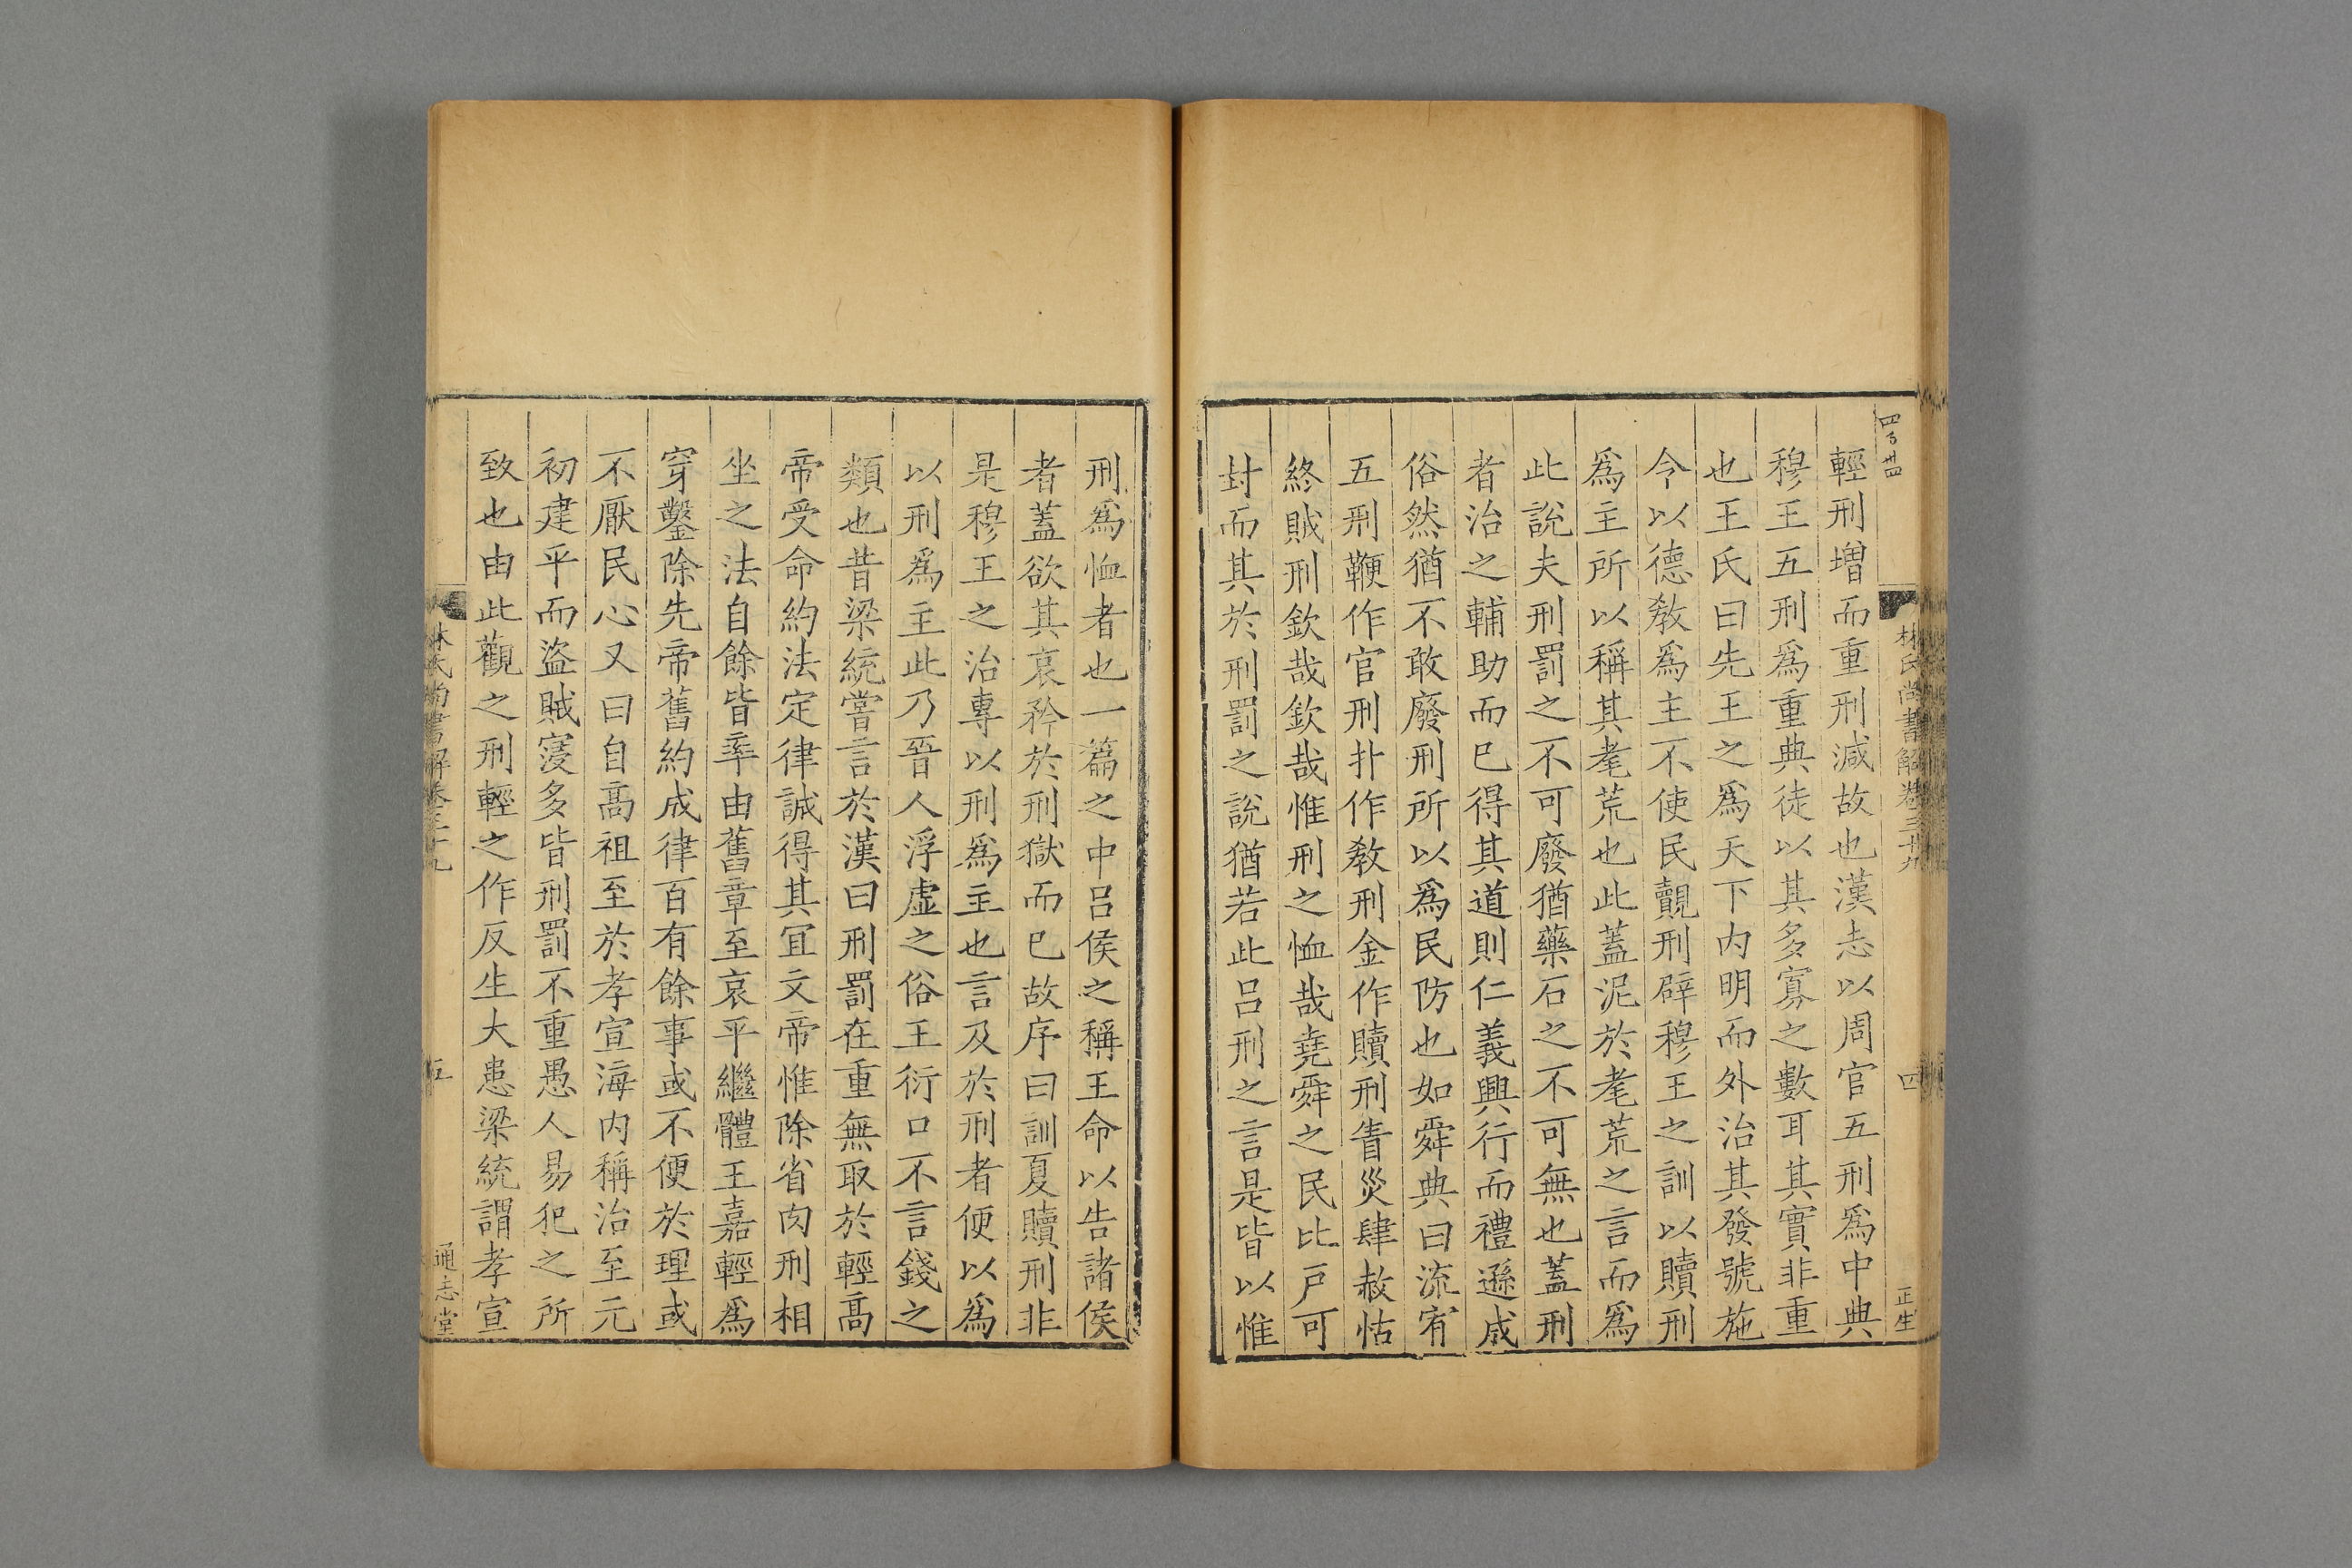 林氏尚書解卷三十九
四
正生
輕刑增而重刑減故也漢志以周官五刑爲中典
穆王五刑爲重典徒以其多寡之數耳其實非重
也王氏曰先王之爲天下内明而外治其發號施
令以德敎爲主不使民覿刑辟穆王之訓以贖刑
爲主所以稱其耄荒也此蓋泥於耄荒之言而爲
此說夫刑罰之不可廢猶藥石之不可無也蓋刑
者治之輔助而巳得其道則仁義興行而禮遜成
俗然猶不敢廢刑所以爲民防也如舜典曰流宥
五刑鞭作官刑扑作敎刑金作贖刑眚災肆赦怙
終賊刑欽哉欽哉惟刑之恤哉堯舜之民比戶可
封而其於刑罰之說猶若此呂刑之言是皆以惟
刑爲恤者也一篇之中呂侯之稱王命以告諸侯
者蓋欲其哀矜於刑獄而巳故序曰訓夏贖刑非
是穆王之治專以刑爲主也言及於刑者便以爲
以刑爲主此乃晉人浮虛之俗王衍口不言錢之
類也昔梁統嘗言於漢曰刑罰在重無取於輕高
帝受命約法定律誠得其冝文帝惟除省肉刑相
坐之法自餘皆率由舊章至哀平繼體王嘉輕爲
穿鑿除先帝舊約成律百有餘事或不便於理或
不厭民心又曰自高祖至於孝宣海内稱治至元
初建平而盜賊寖多皆刑罰不重愚人易犯之所
致也由此觀之刑輕之作反生大患梁統謂孝宣
林氏尚書解卷三十九
五
通志堂